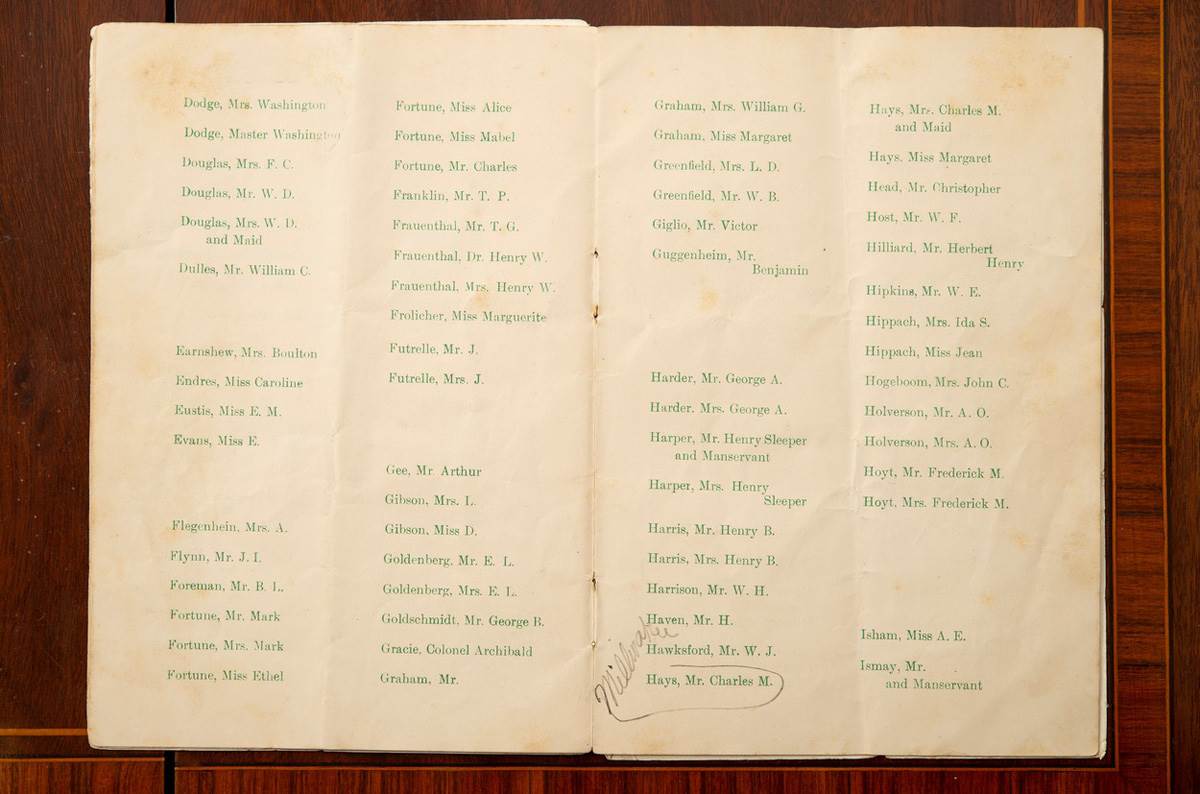 Dodge, Mrs. Washington
Dodge, Master Washington
Douglas, Mrs. F. C.
Douglas, Mr. W. D.
Douglas, Mrs. W. D.
and Maid
Dulles, Mr. William C.
Earnshew, Mrs. Boulton
Endres, Miss Caroline
Eustis, Miss E. M.
Evans, Miss E.
Flegenhein, Mrs. A.
Flynn, Mr. J. I.
Foreman, Mr. B. L.
Fortune, Mr. Mark
Fortune, Mrs. Mark
Fortune, Miss Ethel
Fortune, Miss Alice
Fortune, Miss Mabel
Fortune, Mr. Charles
Franklin, Mr. T. P.
Frauenthal, Mr. T. G.
Frauenthal, Dr. Henry W.
Frauenthal, Mrs. Henry W.
Frolicher, Miss Marguerite
Futrelle, Mr. J.
Futrelle, Mrs. J.
Gee, Mr Arthur
Gibson, Mrs. L.
Gibson, Miss D.
Goldenberg, Mr. E. L.
Goldenberg, Mrs. E. L.
Goldschmidt, Mr. George B.
Gracie, Colonel Archibald
Graham, Mr.
Graham, Mrs. William G.
Graham, Miss Margaret
Greenfield, Mrs. L. D.
Greenfield, Mr. W. B.
Giglio, Mr. Victor
Guggenheim, Mr.
Benjamin
Harder, Mr. George A.
Harder, Mrs. George A.
Harper, Mr. Henry Sleeper
and Manservant
Harper, Mrs. Henry
Sleeper
Harris, Mr. Henry B.
Harris, Mrs. Henry B.
Harrison, Mr. W. H.
Haven, Mr. H.
Hawksford, Mr. W. J.
Hays, Mr. Charles M.
Hays, Mrs. Charles M.
and Maid
Hays. Miss Margaret
Head, Mr. Christopher
Host, Mr. W. F.
Hilliard, Mr. Herbert
Henry
Hipkins, Mr. W. E.
Hippach, Mrs. Ida S.
Hippach, Miss Jean
Hogeboom, Mrs. John C.
Holverson, Mr. A. O.
Holverson, Mrs. A. O.
Hoyt, Mr. Frederick M.
Hoyt, Mrs. Frederick M.
Isham, Miss A. E.
Ismay, Mr.
and Manservant